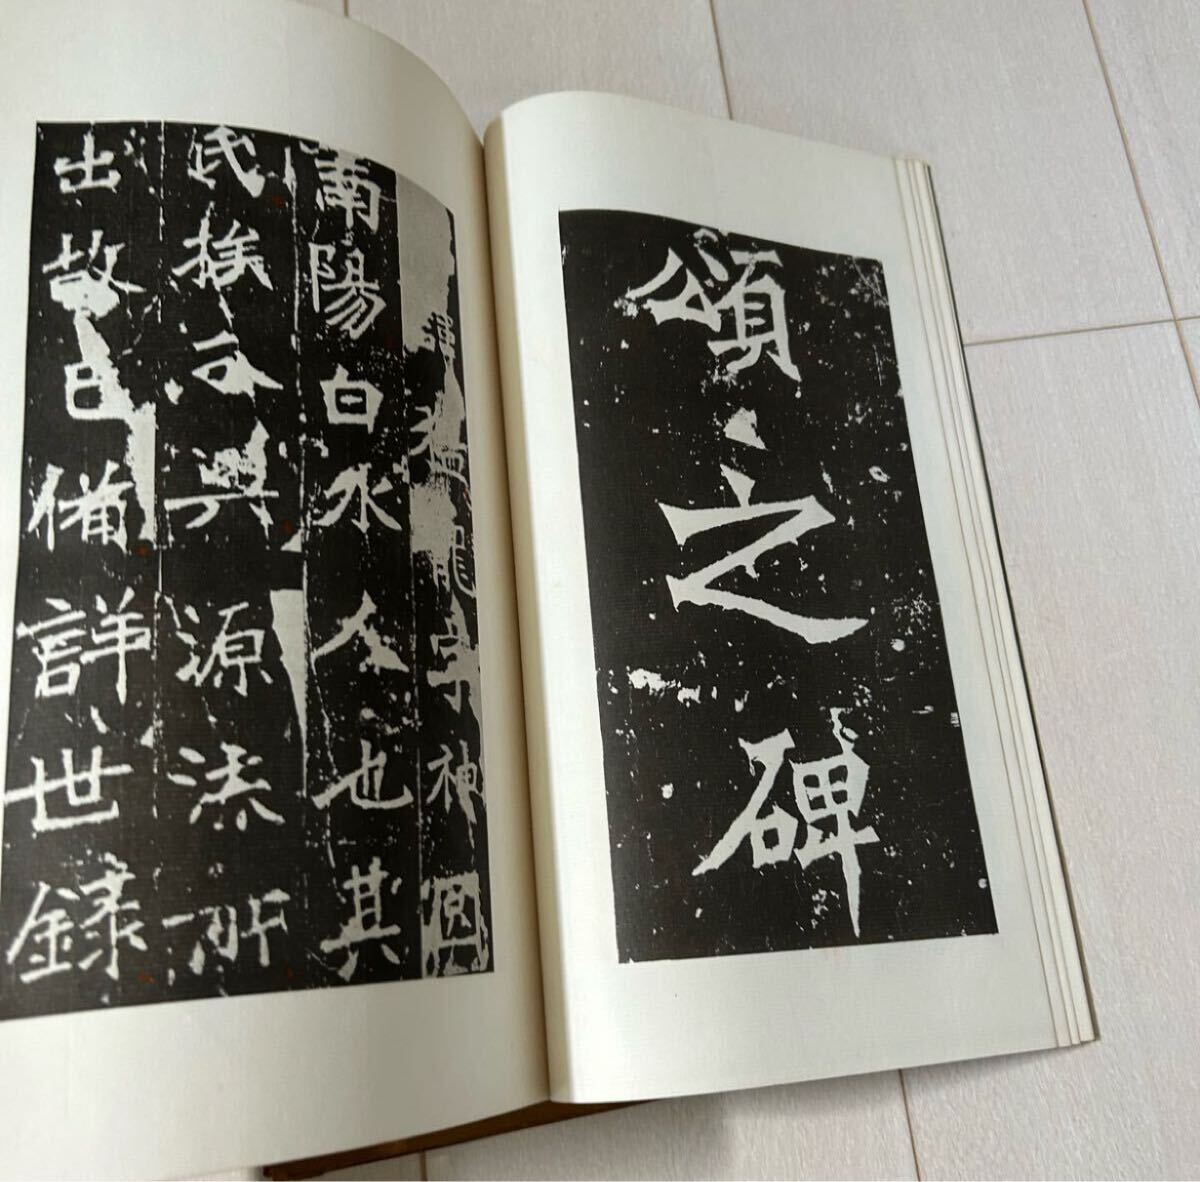 頌之碑
諱猛龍字神冏
南陽白水人也其
氏族分興源流所
出故已備詳世錄